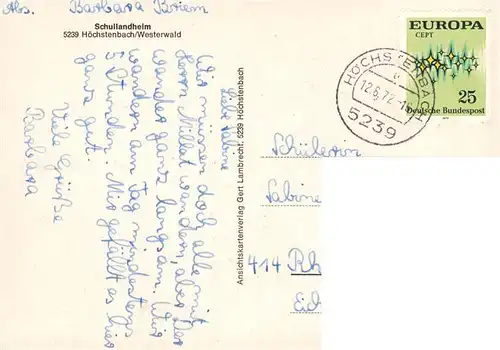 Abs. Barbara Briem
Schullandheim
5239 Höchstenbach/Westerwald
Liebe Sabine
Wir müssen doch alle mit
Herrn Müller wandern, aber der
wandert ganz langsam. Wir
wandern am Tag mindestens
5 Stunden. Mir gefällt es hier
ganz gut.
Viele Grüße
Barbara
Ansichtskartenverlag Gert Lambrecht, 5239 Höchstenbach
EUROPA
CEPT
25
Deutsche Bundespost
HÖCHSTENBACH
12.6.72
5239
Schülerin
Sabine
414 Rh